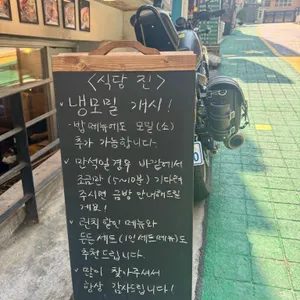 <식당 진>
✓ 냉모밀 개시!
- 밥 메뉴에도 모밀(소)
추가 가능합니다.
✓ 만석일 경우 바깥에서
조금만 (5~10분) 기다려
주시면 금방 안내해드릴
게요!
✓ 런치 할인 메뉴와
든든세트(1인 세트메뉴)도
추천드립니다.
✓ 많이 찾아주셔서
항상 감사드립니다!